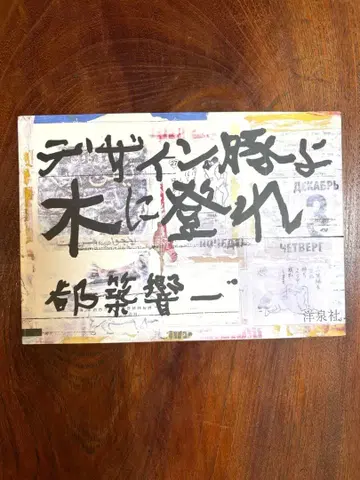 デザイン豚よ
木に登れ
ДЕКАБРЬ
3
ЧЕТВЕРГ
都築響一
洋泉社